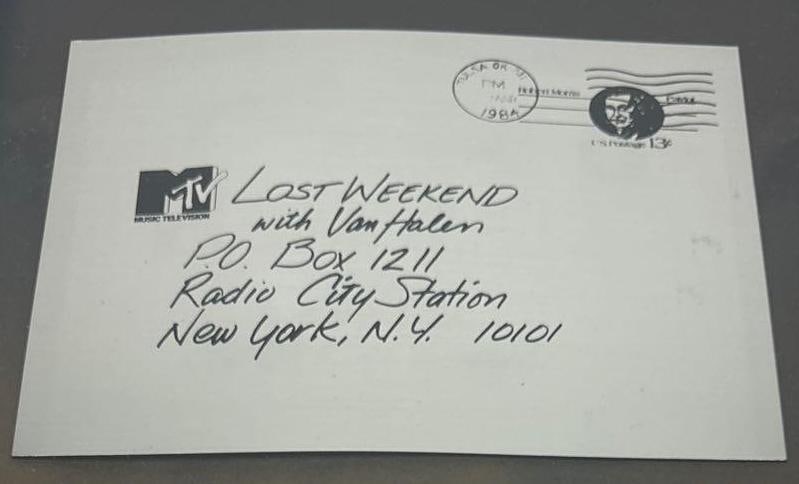 TULSA OK
PM
1984
Robert Morris
Patriot
US Postage 13¢
MTV
MUSIC TELEVISION
LOST WEEKEND
with Van Halen
P.O. Box 1211
Radio City Station
New York, N.Y. 10101